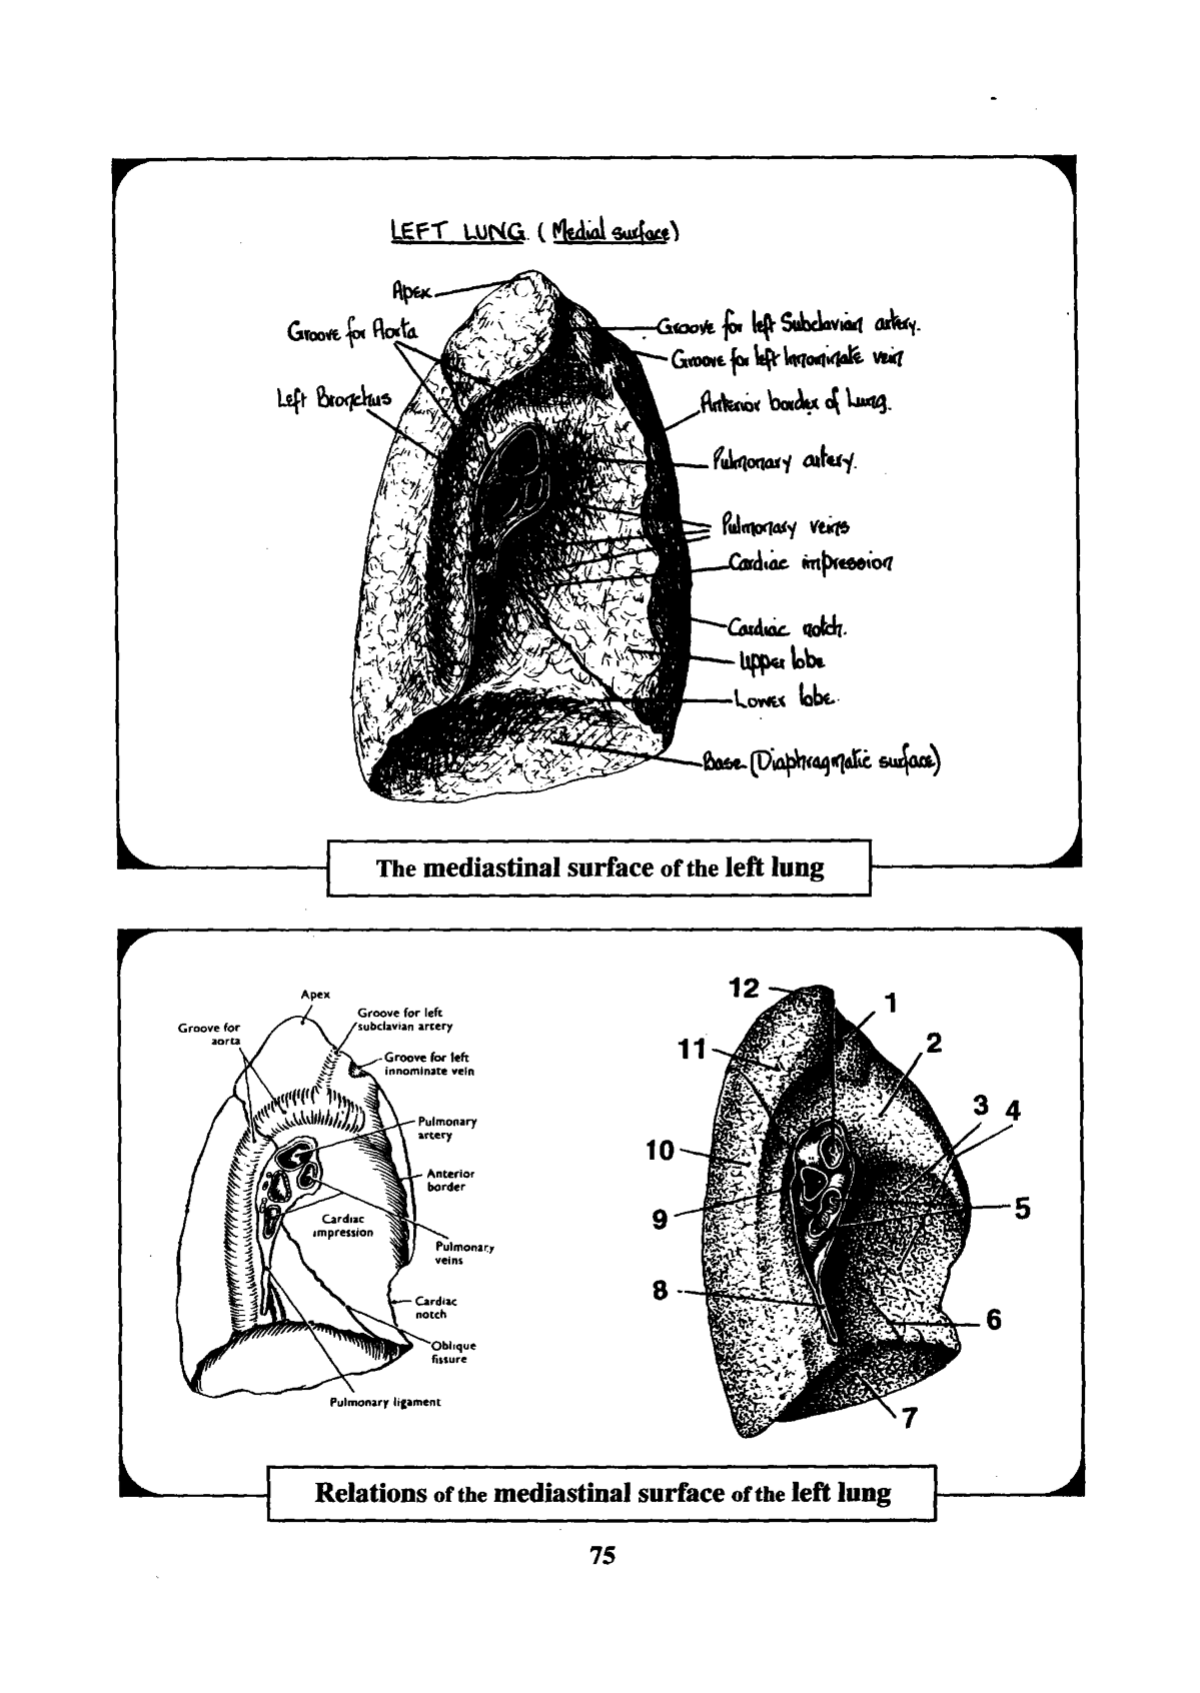 LEFT LUNG. (Medial surface)
Apex
Groove for Aorta
Left Bronchus
Groove for left Subclavian artery.
Groove for left Innominate vein
Anterior border of Lung.
Pulmonary artery.
Pulmonary veins
Cardiac impression
Cardiac notch.
Upper lobe
Lower lobe.
Base (Diaphragmatic surface)
The mediastinal surface of the left lung
Apex
Groove for
aorta
Groove for left
subclavian artery
Groove for left
innominate vein
Pulmonary
artery
Anterior
border
Cardiac
impression
Pulmonary
veins
Cardiac
notch
Oblique
fissure
Pulmonary ligament
12
1
11
2
3
4
10
9
5
8
6
7
Relations of the mediastinal surface of the left lung
75